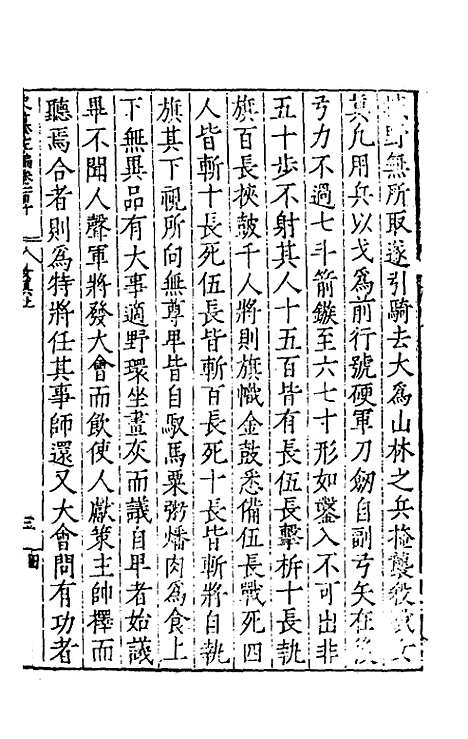 野無所取遂引騎去大為山林之兵掩襲殺
其凡用兵以戈為前行號硬軍刀劒自副弓矢在後
弓力不過七斗箭鏃至六七寸形如鑿入不可出非
五十步不射其人十五百皆有長伍長擊柝十長執
旗百長挾鼓千人將則旗幟金鼓悉備伍長戰死四
人皆斬十長死伍長皆斬百長死十長皆斬將自執
旗其下視所向無尊卑皆自馭馬粟粥燔肉為食上
下無異品有大事適野環坐畫灰而議自卑者始議
畢不聞人聲軍將發大會而飲使人獻策主帥擇而
聽焉合者則為特將任其事師還又大會問有功者